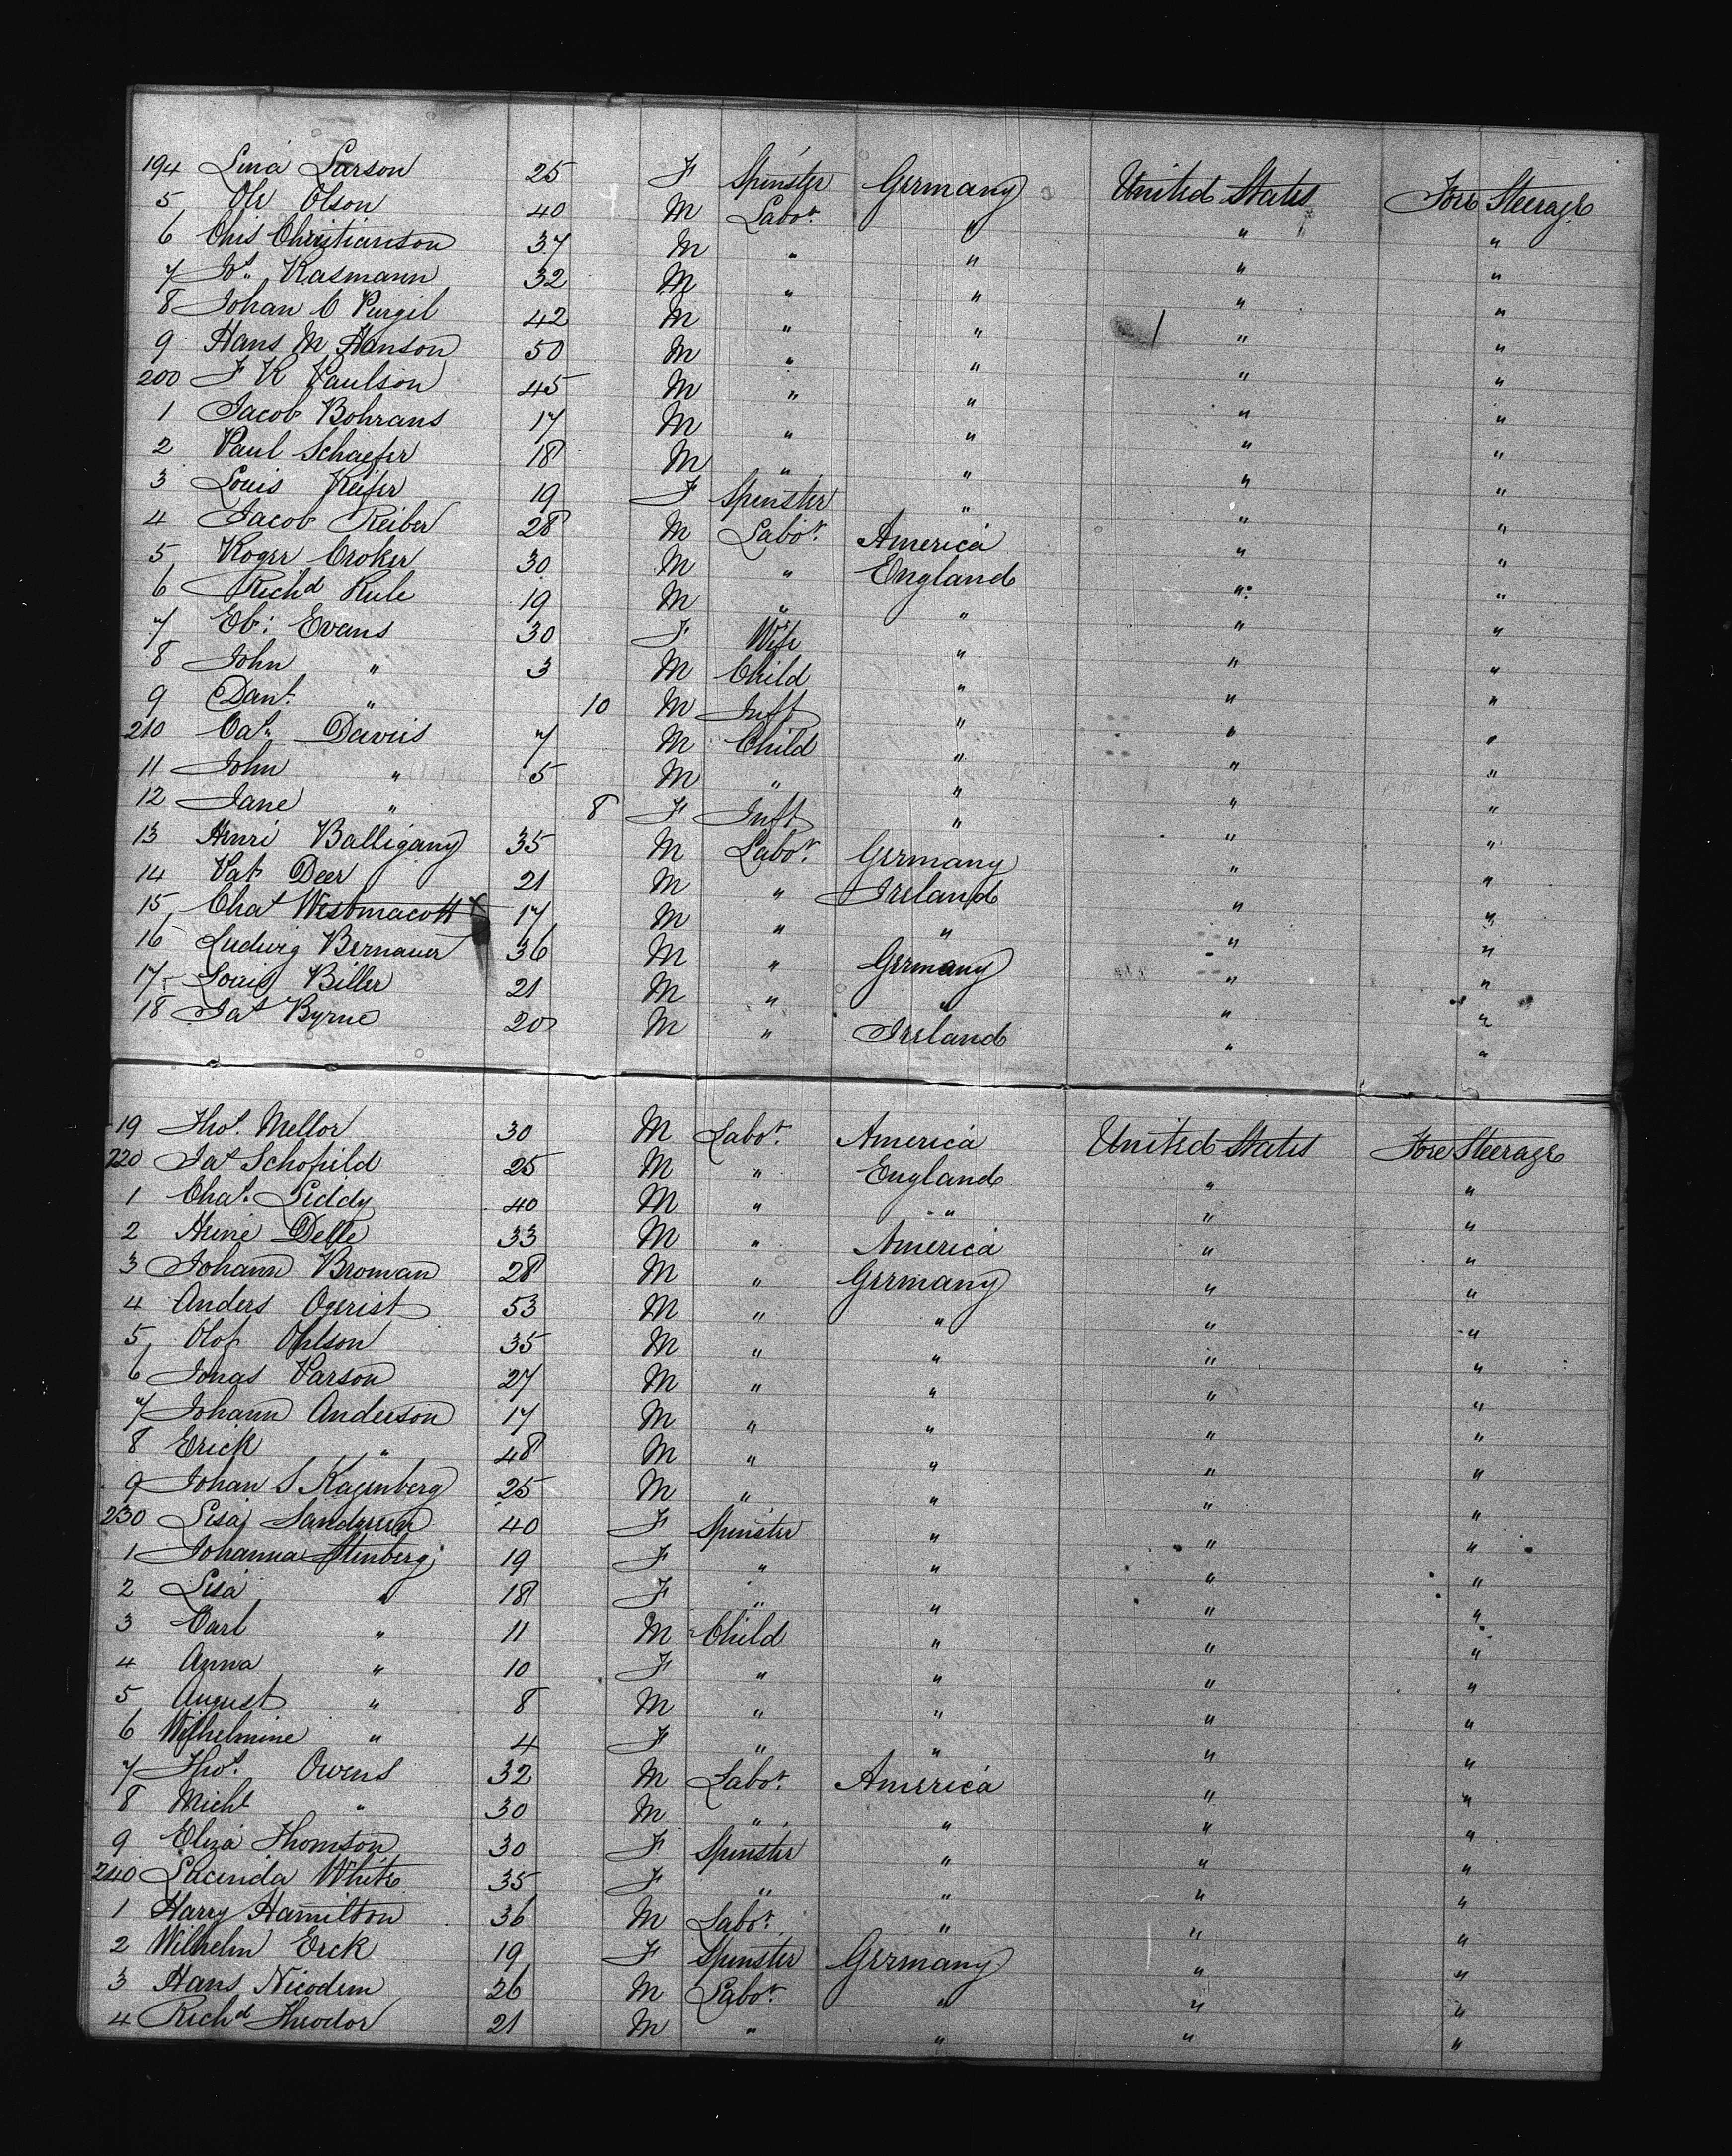 194 Lina Larson 25 F Spinster Germany United States Fore Steerage
5 Ole Olson 40 M Labor. " " "
6 Chis Christianson 37 M " " " "
7 Jos. Rasmann 32 M " " " "
8 Johan C Purgil 42 M " " " "
9 Hans M Hanson 50 M " " " "
200 F K Paulson 45 M " " " "
1 Jacob Bohrans 17 M " " " "
2 Paul Schaefer 18 M " " " "
3 Louis Keifer 19 F Spinster " " "
4 Jacob Reiber 28 M Labor. America " "
5 Roger Croker 30 M " England " "
6 Richd Rule 19 M " " " "
7 Eb: Evans 30 F Wife " " "
8 John " 3 M Child " " "
9 Danl. " 10 M Inft " " "
210 Cath. Davis 7 M Child " " "
11 John " 5 M " " " "
12 Jane " 8 F Inft " " "
13 Henri Balligany 35 M Labor. Germany " "
14 Pat Deer 21 M " Ireland " "
15 Chas Westmacott x 17 M " " " "
16 Ludwig Bernauer 36 M " Germany " "
17 Louis Biller 21 M " " " "
18 Jas Byrne 20 M " Ireland " "
19 Thos. Mellor 30 M Labor. America United States Fore Steerage
220 Jas Schofield 25 M " England " "
1 Chas. Liddy 40 M " " " "
2 Heine Delle 33 M " America " "
3 Johann Broman 28 M " Germany " "
4 Anders Ogerist 53 M " " " "
5 Olof Ohlson 35 M " " " "
6 Jonas Parson 27 M " " " "
7 Johann Anderson 17 M " " " "
8 Erick " 48 M " " " "
9 Johan S Kagenberg 25 M " " " "
230 Lisa 40 F Spinster " " "
1 Johanna Stenberg 19 F " " " "
2 Lisa " 18 F " " " "
3 Carl " 11 M Child " " "
4 Anna " 10 F " " " "
5 August " 8 M " " " "
6 Wilhelmine " 4 F " " " "
7 Thos. Owens 32 M Labor. America " "
8 Michl " 30 M " " " "
9 Eliza Thomson 30 F Spinster " " "
240 Lucinda White 35 F " " " "
1 Harry Hamilton 36 M Labor. " " "
2 Wilhelm Erck 19 F Spinster Germany " "
3 Hans Nicodem 26 M Labor. " " "
4 Richd Theodor 21 M " " " "